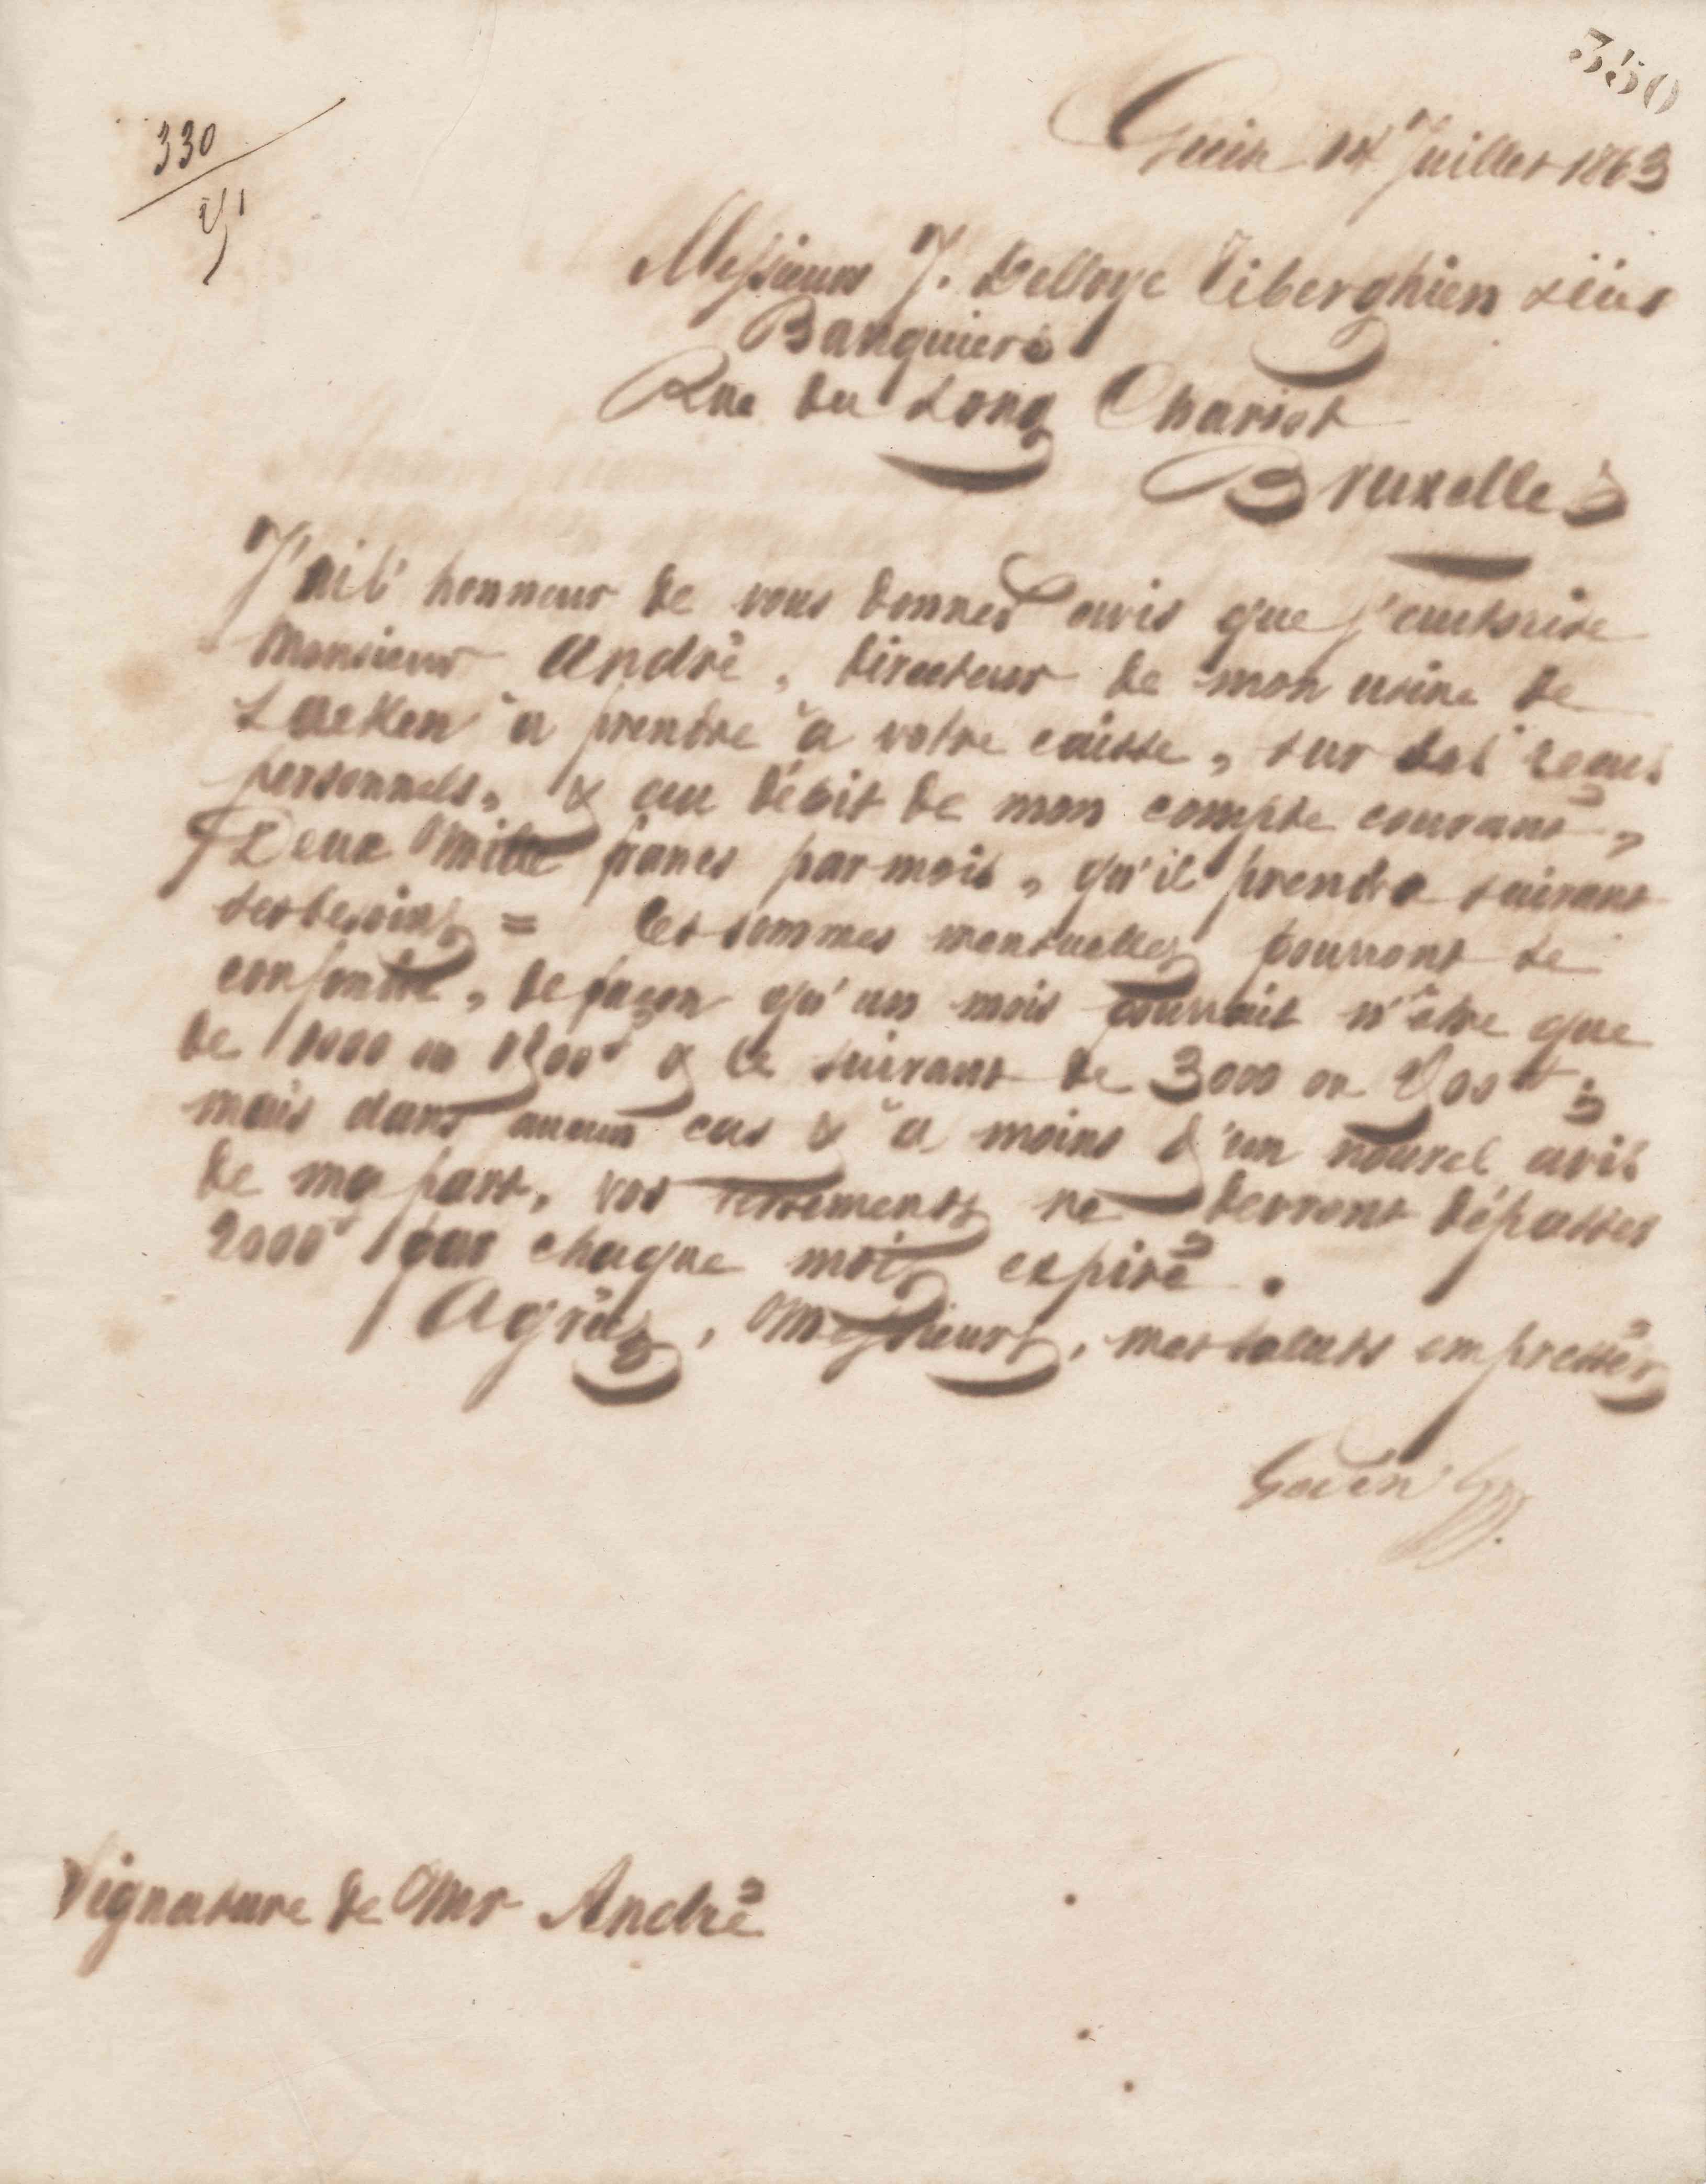 350
330
Guise 14 Juillet 1863
Messieurs J. Delloye Tiberghien &
Banquiers
Rue du Long Chariot
Bruxelles
J'ai l'honneur de vous donner avis que j'autorise
Monsieur André, directeur de mon usine de
Laeken à prendre à votre caisse, sur ses reçus
personnels, & au débit de mon compte courant,
Deux Mille francs par mois, qu'il prendra suivant
ses besoins = Ces sommes mensuelles pourront se
confondre, de façon qu'un mois pourrait n'être que
de 1000 ou 1500f & le suivant de 3000 ou
mais dans aucun cas & à moins d'un nouvel avis
de ma part, vos versements ne devront dépasser
2000f par chaque mois expiré.
Agréez, Messieurs, mes saluts empressés
Godin
Signature de Mr André